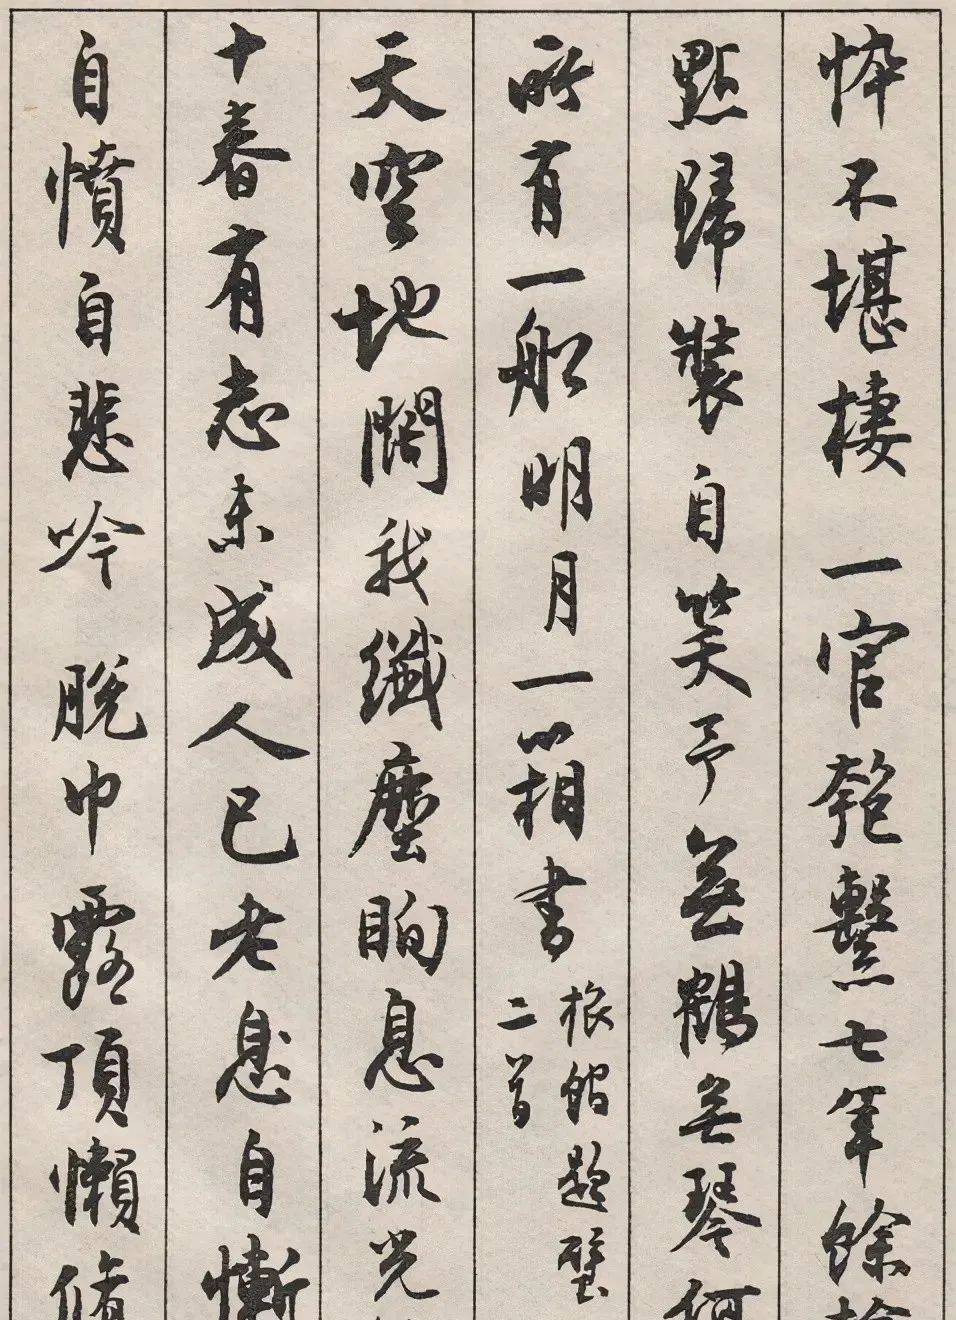 悴不堪棲一官匏繫七年餘檢
點歸裝自笑予無鶴無琴何
所有一船明月一箱書
旅館題壁
二首
天空地闊我纖塵眴息流光
十春有志未成人已老息自慚
自憤自悲吟脫巾露頂懶脩